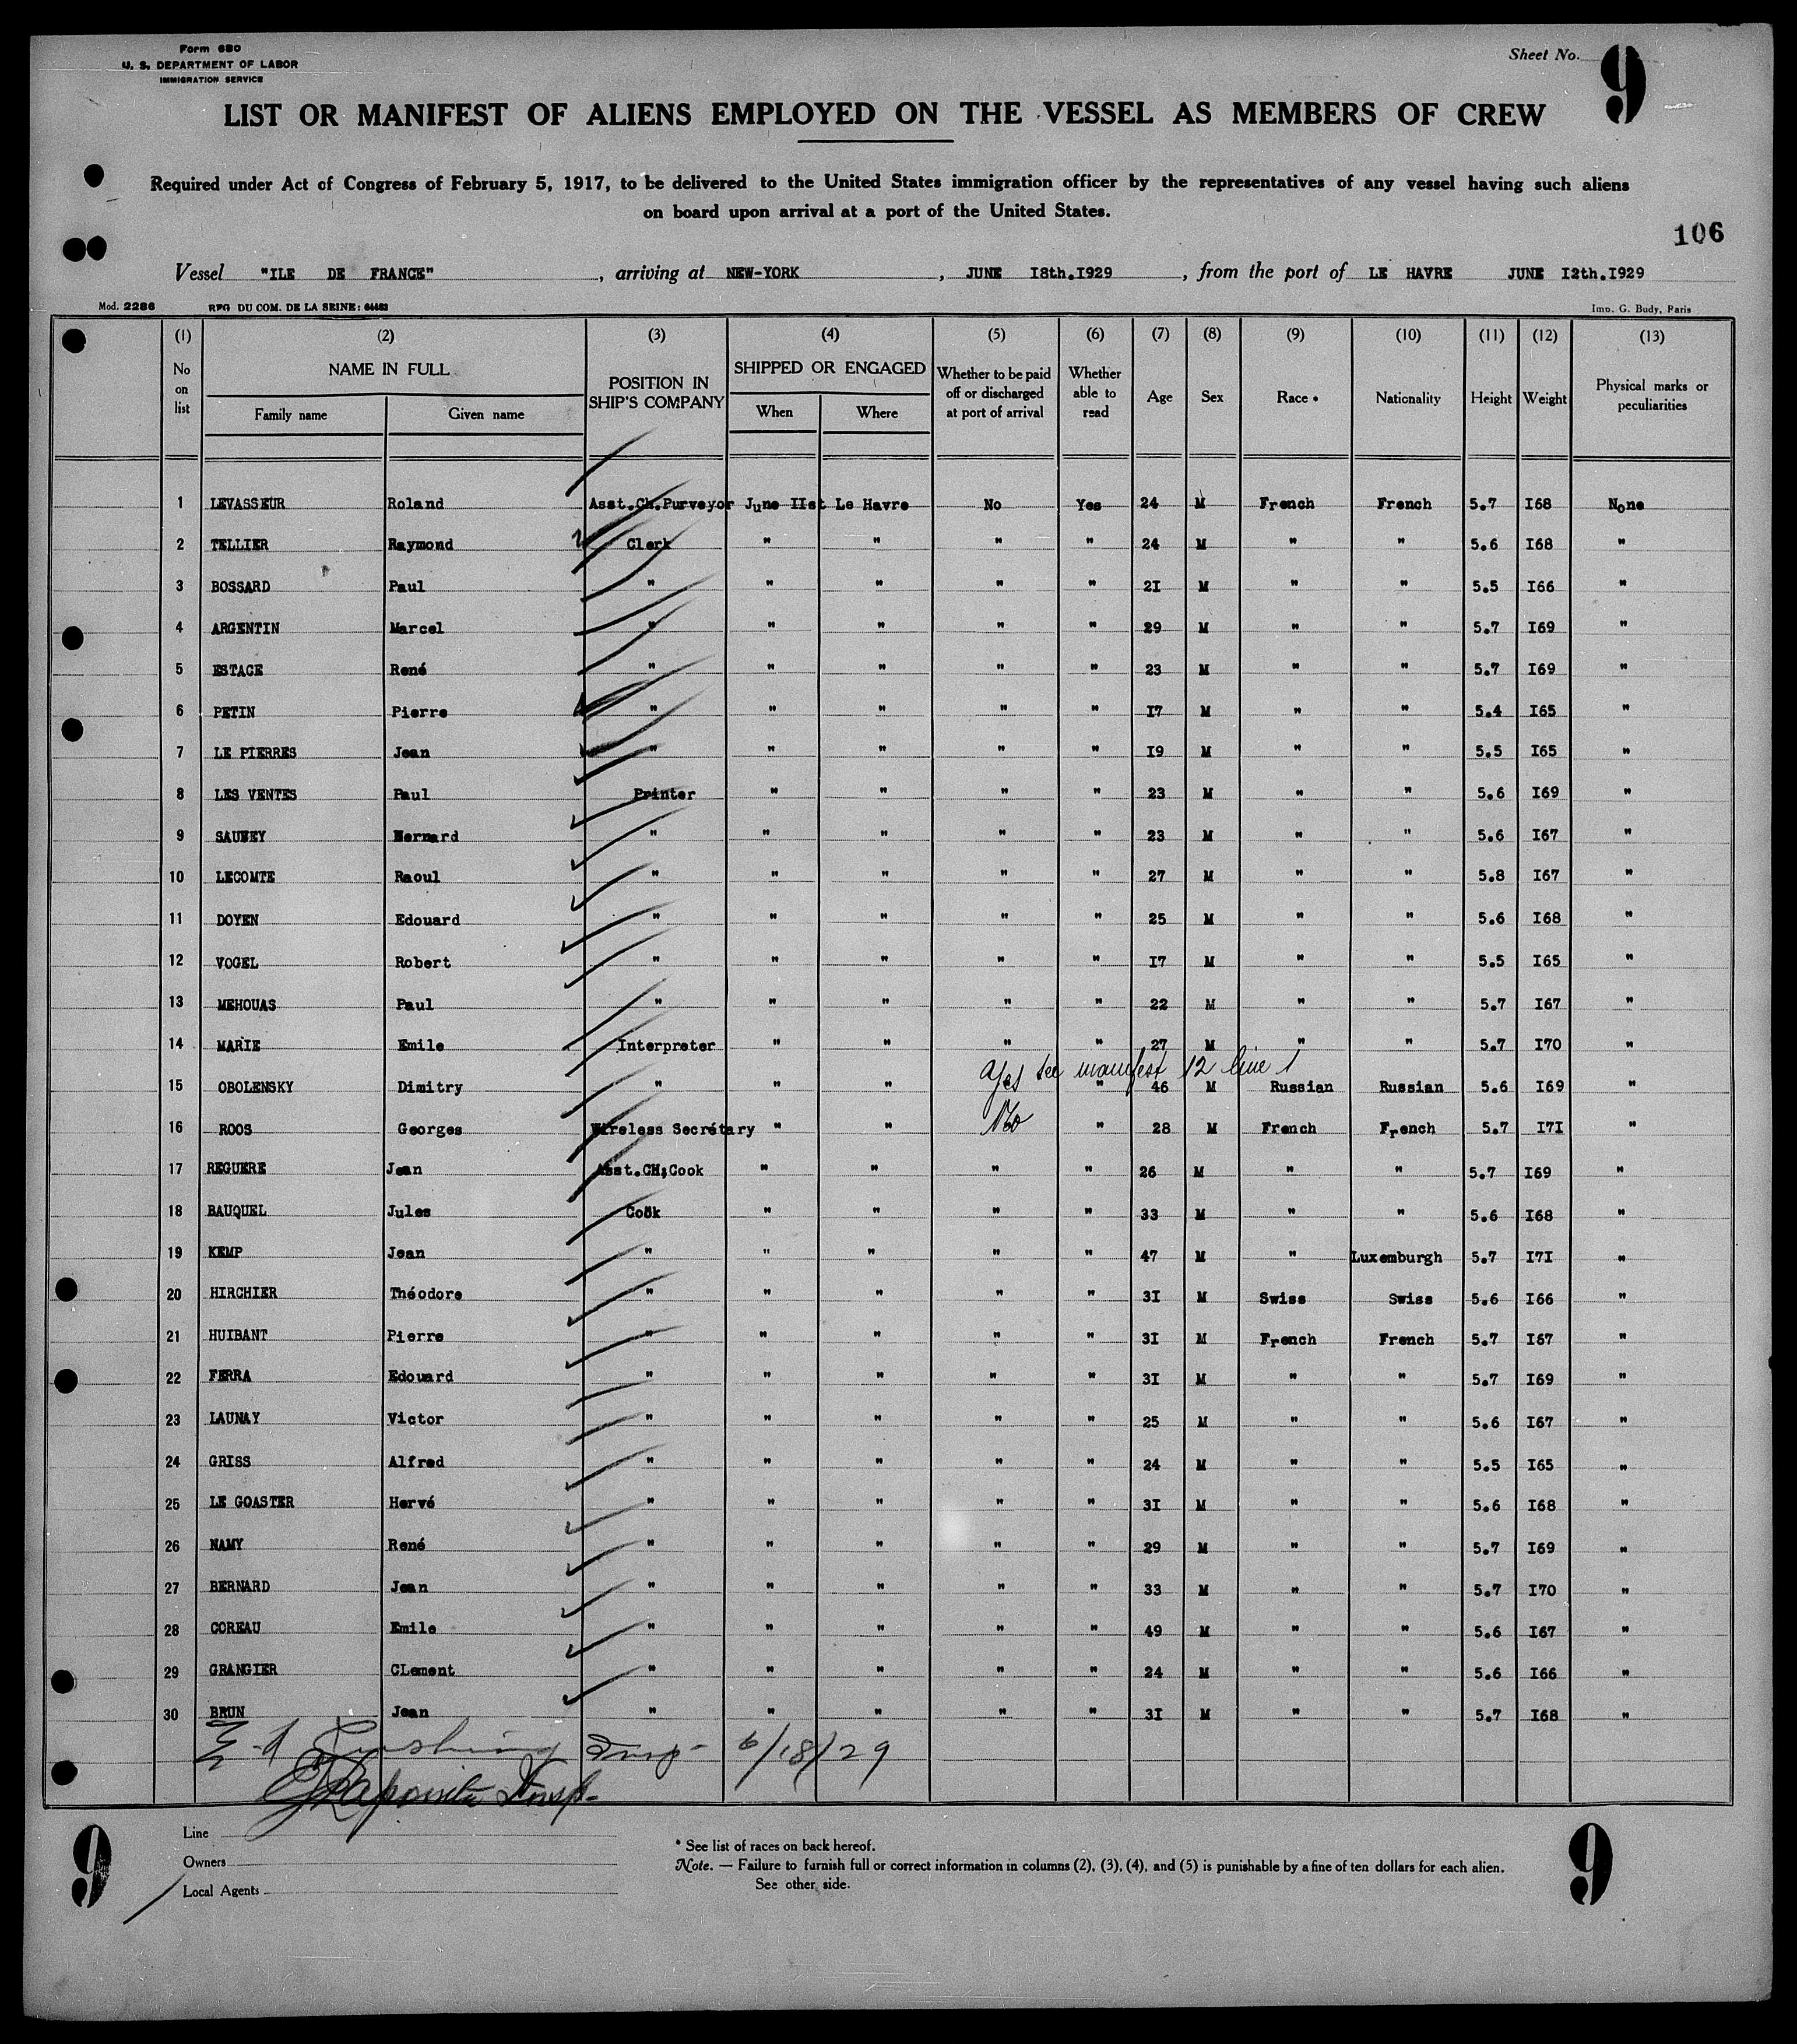 Form 680
U. S. DEPARTMENT OF LABOR
IMMIGRATION SERVICE
Sheet No. 9
LIST OR MANIFEST OF ALIENS EMPLOYED ON THE VESSEL AS MEMBERS OF CREW
Required under Act of Congress of February 5, 1917, to be delivered to the United States immigration officer by the representatives of any vessel having such aliens
on board upon arrival at a port of the United States.
106
Vessel "ILE DE FRANCE", arriving at NEW-YORK, JUNE I8th.I929, from the port of LE HAVRE JUNE I2th.I929
Mod. 2286 RPG DU COM. DE LA SEINE: Imp. G. Budy, Paris
(1) (2) (3) (4) (5) (6) (7) (8) (9) (10) (11) (12) (13)
No on list NAME IN FULL Family name Given name POSITION IN SHIP'S COMPANY SHIPPED OR ENGAGED When Where Whether to be paid off or discharged at port of arrival Whether able to read Age Sex Race * Nationality Height Weight Physical marks or peculiarities
1 LEVASSEUR Roland Asst.Ch.Purveyor June IIst Le Havre No Yes 24 M French French 5.7 I68 None
2 TELLIER Raymond Clerk " " " " 24 M " " 5.6 I68 "
3 BOSSARD Paul " " " " " 2I M " " 5.5 I66 "
4 ARGENTIN Marcel " " " " " 29 M " " 5.7 I69 "
5 ESTAGE René " " " " " 23 M " " 5.7 I69 "
6 PETIN Pierre " " " " " I7 M " " 5.4 I65 "
7 LE PIERRES Jean " " " " " I9 M " " 5.5 I65 "
8 LES VENTES Paul Printer " " " " 23 M " " 5.6 I69 "
9 " " " " " 23 M " " 5.6 I67 "
10 LECOMTE Raoul " " " " " 27 M " " 5.8 I67 "
11 DOYEN Edouard " " " " " 25 M " " 5.6 I68 "
12 VOGEL Robert " " " " " I7 M " " 5.5 I65 "
13 MEHOUAS Paul " " " " " 22 M " " 5.7 I67 "
14 MARIE Emile Interpreter " " " " 27 M " " 5.7 I70 "
yes see manifest 12 line 1
15 OBOLENSKY Dimitry " " " " 46 M Russian Russian 5.6 I69 "
16 ROOS Georges Wireless Secrétary " " No " 28 M French French 5.7 I7I "
17 REGUERE Jean Asst.CH;Cook " " " " 26 M " " 5.7 I69 "
18 BAUQUEL Jules Cook " " " " 33 M " " 5.6 I68 "
19 KEMP Jean " " " " " 47 M " Luxemburgh 5.7 I7I "
20 HIRCHIER Théodore " " " " " 3I M Swiss Swiss 5.6 I66 "
21 HUIBANT Pierre " " " " " 3I M French French 5.7 I67 "
22 FERRA Edouard " " " " " 3I M " " 5.7 I69 "
23 LAUNAY Victor " " " " " 25 M " " 5.6 I67 "
24 GRISS Alfred " " " " " 24 M " " 5.5 I65 "
25 LE GOASTER Hervé " " " " " 3I M " " 5.6 I68 "
26 NAMY René " " " " " 29 M " " 5.7 I69 "
27 BERNARD Jean " " " " " 33 M " " 5.7 I70 "
28 COREAU Emile " " " " " 49 M " " 5.6 I67 "
29 GRANGIER CLement " " " " " 24 M " " 5.6 I66 "
30 BRUN Jean " " " " " 3I M " " 5.7 I68 "
Insp- 6/18/29
Lapointe Insp-
9 9
Line
Owners
Local Agents
* See list of races on back hereof.
Note. — Failure to furnish full or correct information in columns (2), (3), (4), and (5) is punishable by a fine of ten dollars for each alien.
See other side.